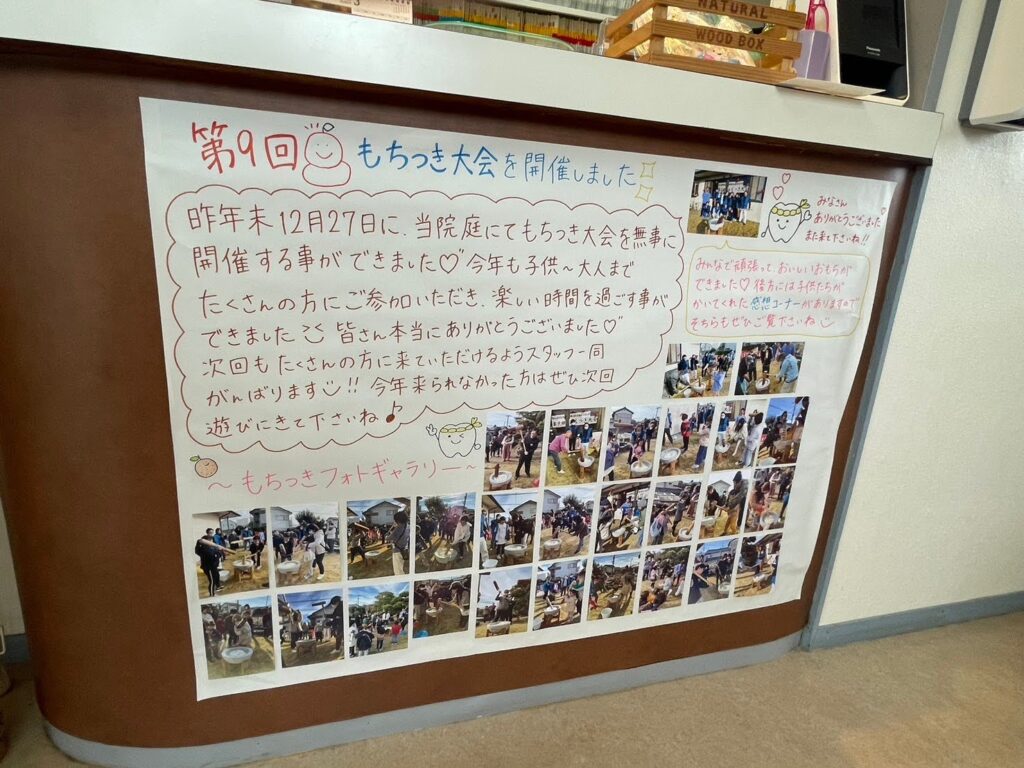 NATURAL
WOOD BOX
Panasonic
第9回 もちつき大会を開催しました
昨年末12月27日に、当院庭にてもちつき大会を無事に
開催する事ができました♡ 今年も子供〜大人まで
たくさんの方にご参加いただき、楽しい時間を過ごす事が
できました 皆さん本当にありがとうございました♡
次回もたくさんの方に来ていただけるようスタッフ一同
がんばります!! 今年来られなかった方はぜひ次回
遊びにきて下さいね♪
みなさん
ありがとうございました
また来て下さいね!!
みんなで頑張って、おいしいおもちが
できました♡ 後方には子供たちが
かいてくれた感想コーナーがありますので
そちらもぜひご覧下さいね
〜もちつきフォトギャラリー〜